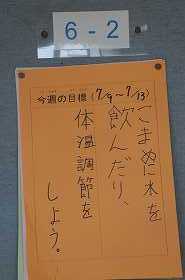 6-2
今週の目標(7/9~7/13)
こまめに水を
飲んだり、
体温調節を
しよう。